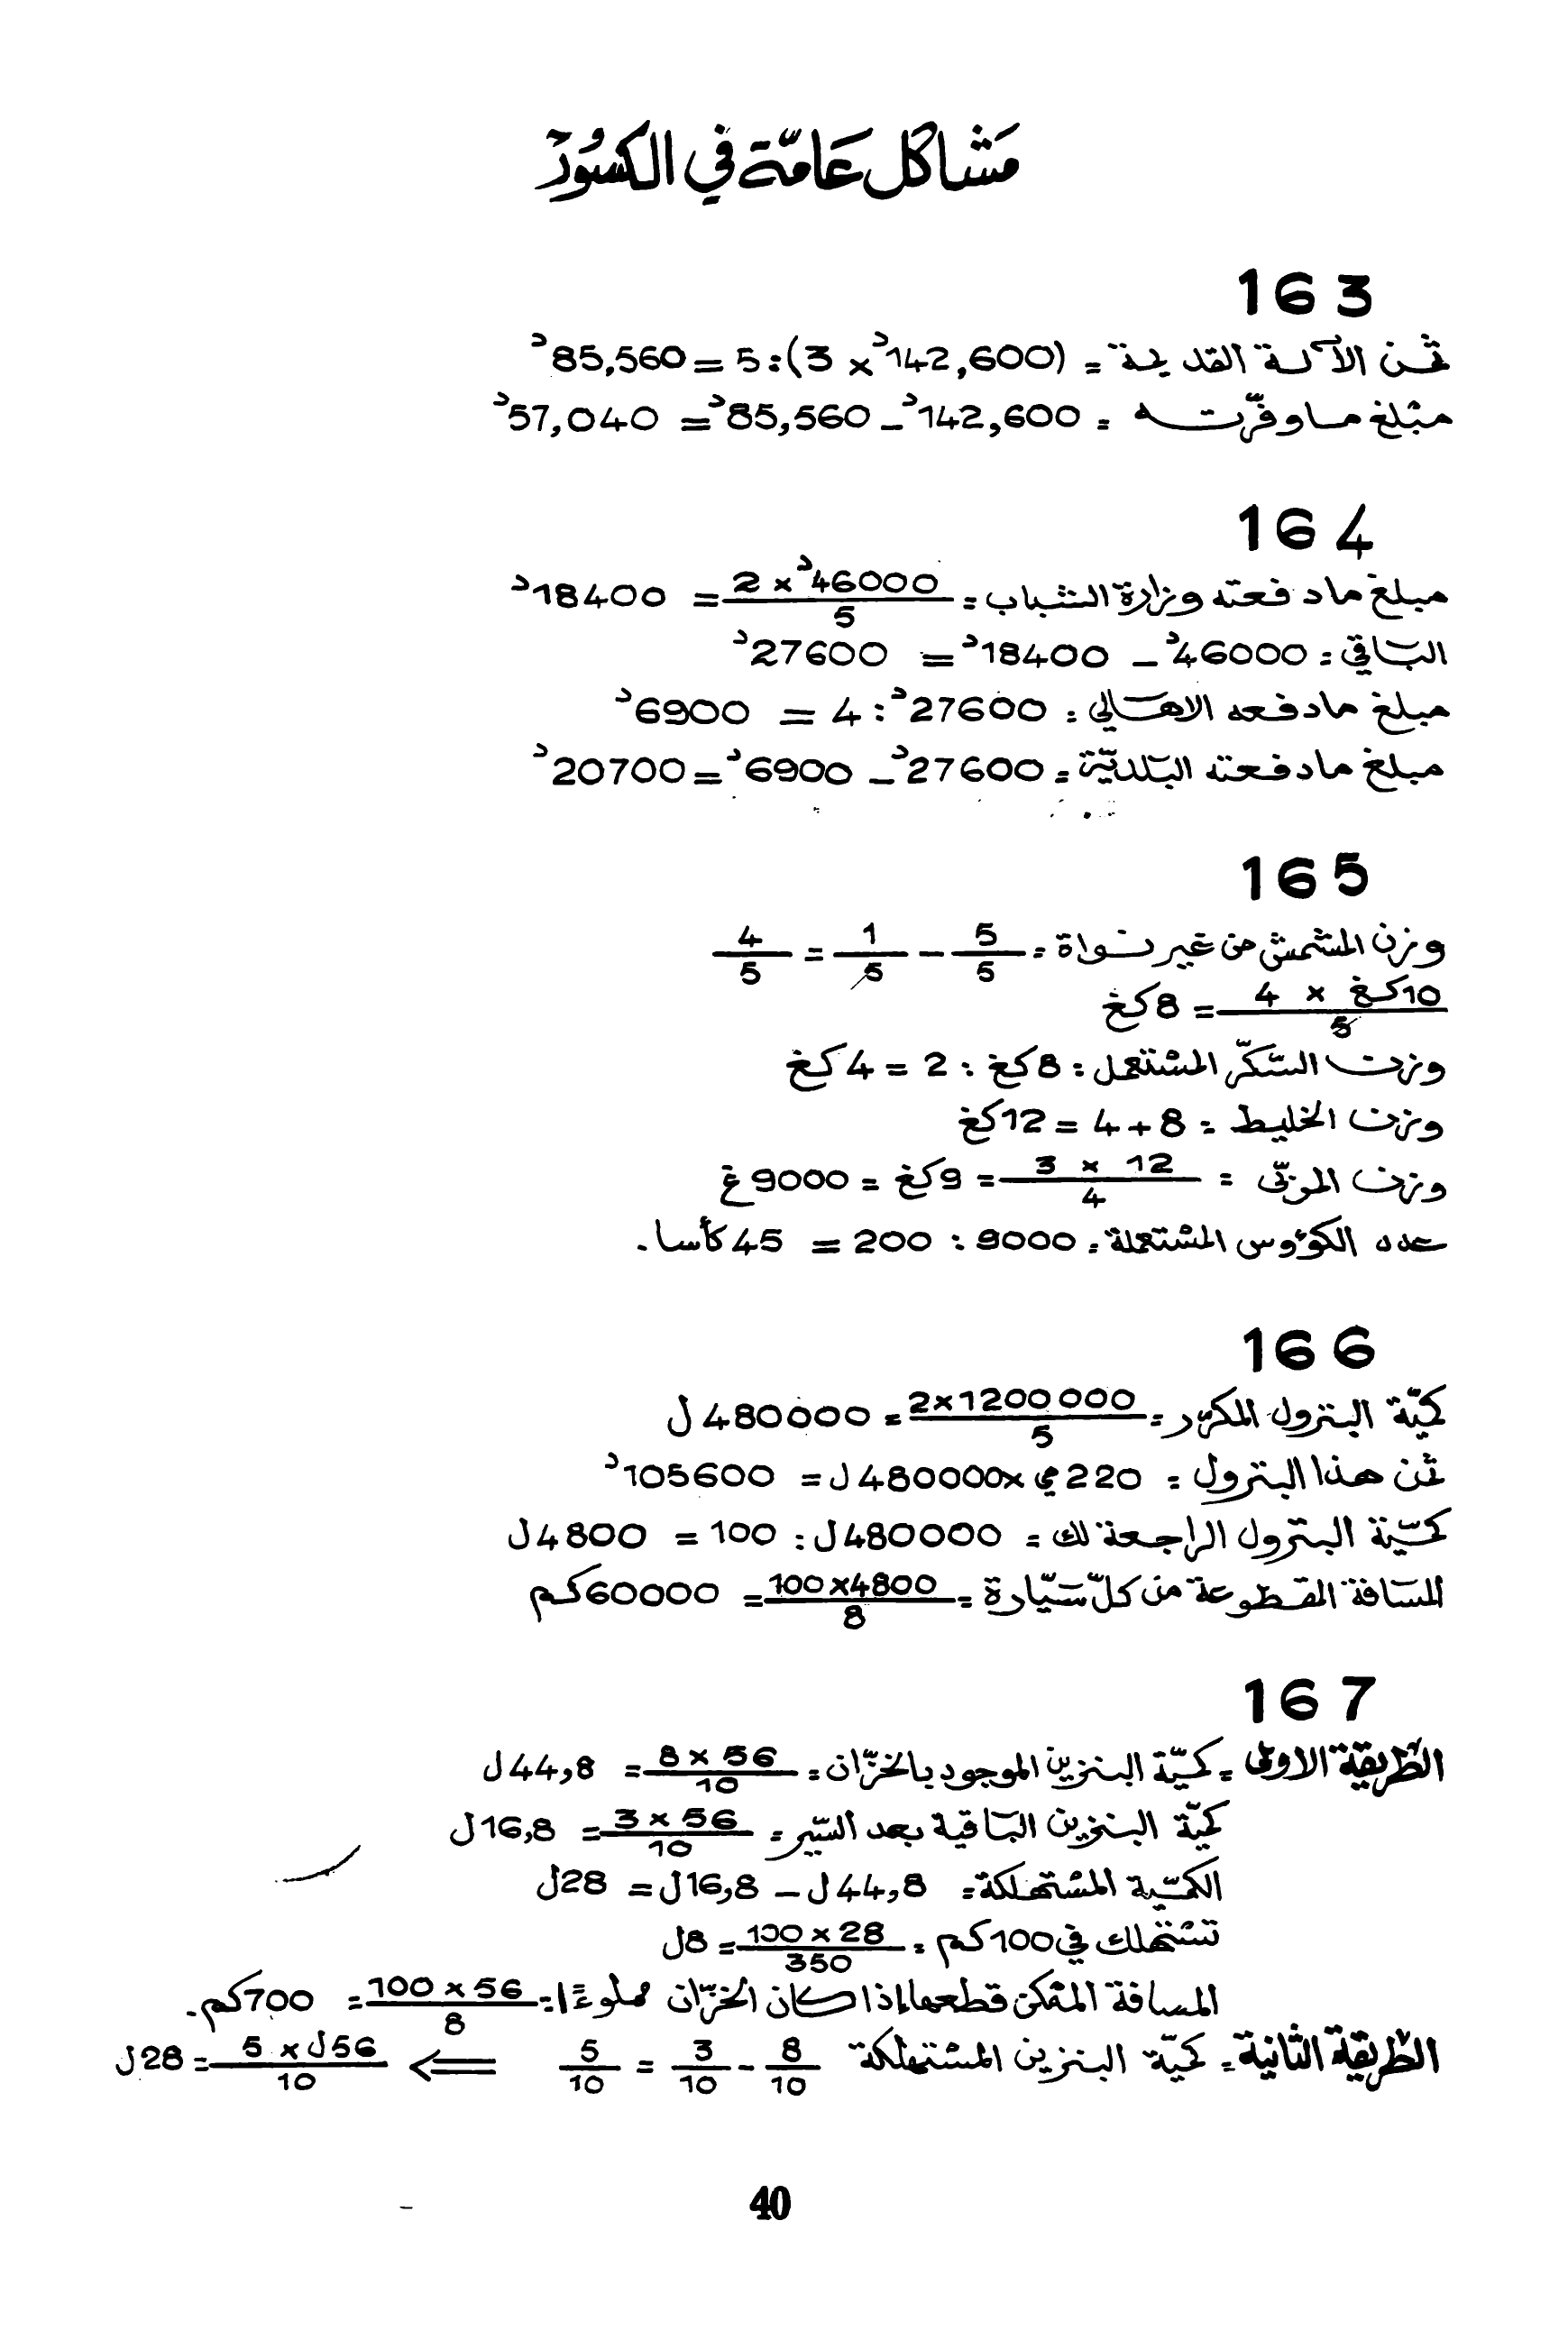 مَشاكل عَامّة في الكسُور
163
ثمن الآلة القديمة = (142,600د x 3) : 5 = 85,560د
مبلغ ما وفّرته = 142,600د - 85,560د = 57,040د
164
مبلغ ما دفعته وزارة الشباب = 46000د x 2 / 5 = 18400د
الباقي = 46000د - 18400د = 27600د
مبلغ ما دفعه الاهالي = 27600د : 4 = 6900د
مبلغ ما دفعته البلديّة = 27600د - 6900د = 20700د
165
وزن المشمش من غير نواة = 5/5 - 1/5 = 4/5
10كغ x 4 / 5 = 8كغ
وزن السّكّر المستعمل = 8كغ : 2 = 4كغ
وزن الخليط = 8 + 4 = 12كغ
وزن المربّى = 12 x 3 / 4 = 9كغ = 9000غ
عدد الكؤوس المستعملة = 9000 : 200 = 45 كأسا.
166
كميّة البترول المكرّر = 1200 000 x 2 / 5 = 480000 ل
ثمن هذا البترول = 220 مي x 480000 ل = 105600د
كميّة البترول الراجعة لك = 480000 ل : 100 = 4800 ل
المسَافة المقطوعة من كلّ سَيّارة = 4800 x 100 / 8 = 60000 كم
167
الطّريقة الاولى = كميّة البنزين الموجود بالخزّان = 56 x 8 / 10 = 44,8 ل
كميّة البنزين البَاقية بعد السّير = 56 x 3 / 10 = 16,8 ل
الكميّة المستهلكة = 44,8 ل - 16,8 ل = 28 ل
تستهلك في 100 كم = 28 x 100 / 350 = 8 ل
المسافة الممكن قطعها إذا كان الخزّان مملوءًا = 56 x 100 / 8 = 700 كم.
الطّريقة الثانية = كميّة البنزين المستهلكة 8/10 - 3/10 = 5/10 <== 56 ل x 5 / 10 = 28 ل
40